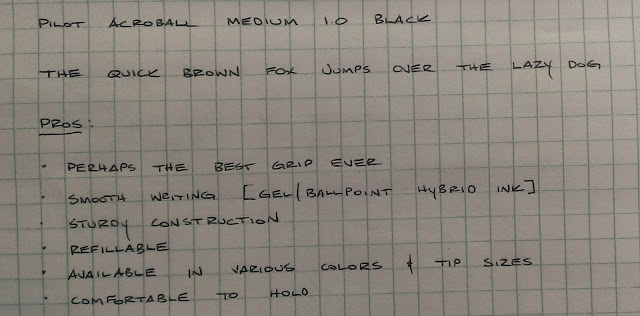 PILOT ACROBALL MEDIUM 1.0 BLACK
THE QUICK BROWN FOX JUMPS OVER THE LAZY DOG
PROS:
· PERHAPS THE BEST GRIP EVER
· SMOOTH WRITING [GEL/BALLPOINT HYBRID INK]
· STURDY CONSTRUCTION
· REFILLABLE
· AVAILABLE IN VARIOUS COLORS & TIP SIZES
· COMFORTABLE TO HOLD